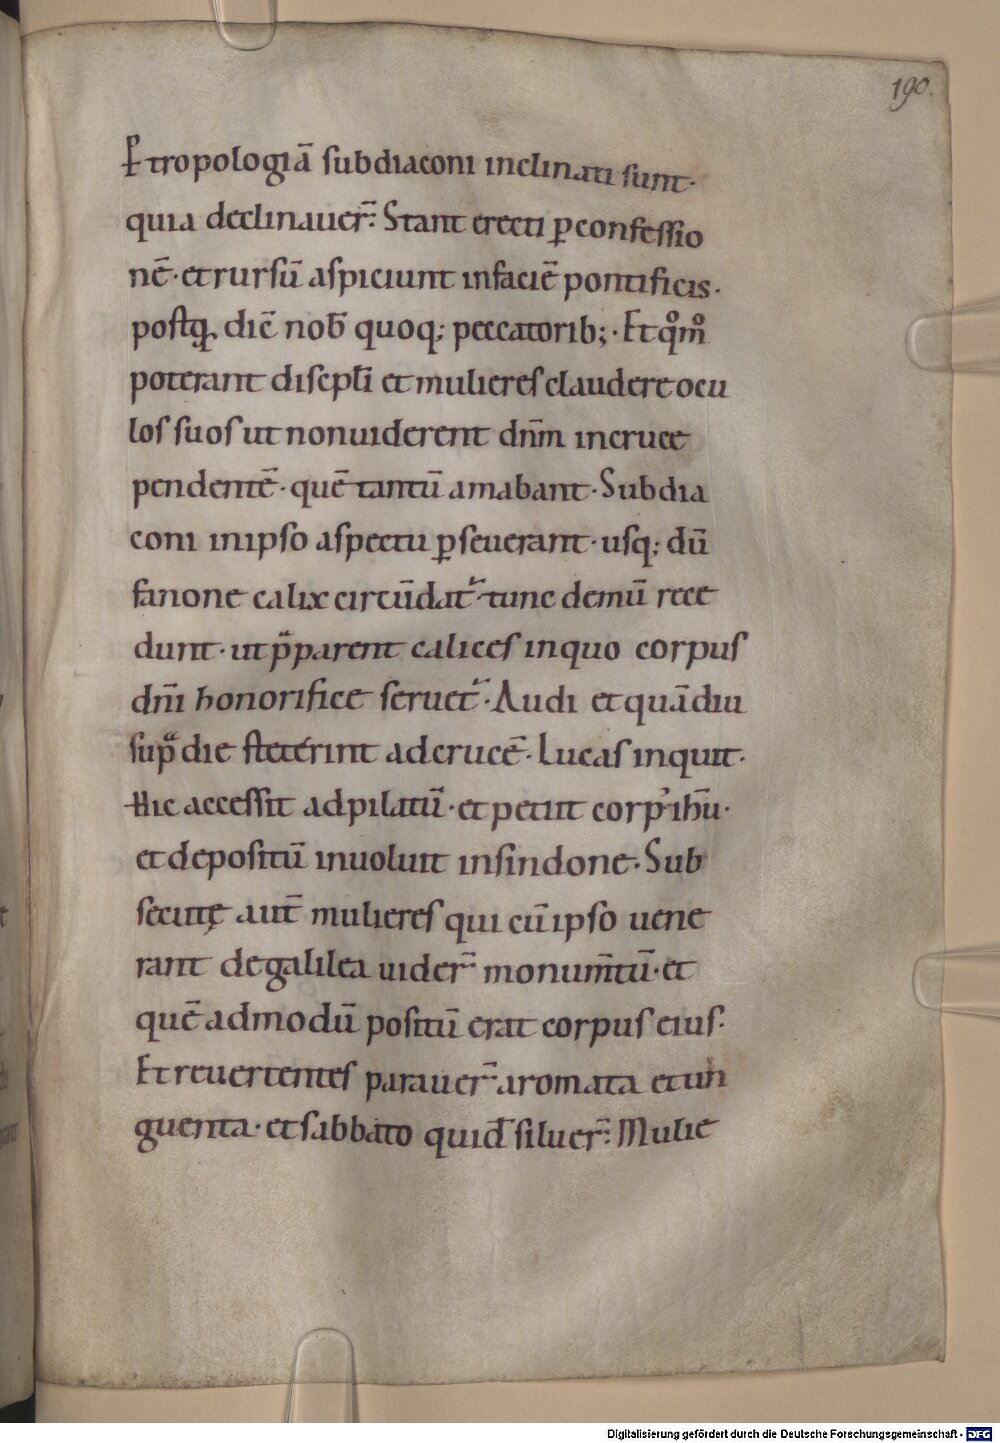 190.
P tropologiā subdiaconi inclinati sunt·
quia declinauer̄: Stant erecti ꝑ confessio
nē· et rursū aspiciunt in faciē pontificis·
postꝗ dic̄ nob̄ quoq; peccatorib;· Et qͦmͦ
poterant discipl̄i et mulieres claudere ocu
los suos ut non uiderent dn̄m in cruce
pendentē· quē tantū amabant· Subdia
coni in ipso aspectu ꝑseuerant· usq; dū
fanone calix circūdat᷑· tunc demū rece
dunt· ut p̄parent calices in quo corpus
dn̄i honorifice seruet᷑· Audi et quādiu
sup̄die steterint ad crucē· Lucas inquit·
Hic accessit ad pilatū· et petiit corp᾽ ihū·
et depositū inuoluit in sindone· Sub
secutę aut̄ mulieres qui cū ipso uene
rant de galilea uider̄ monum̄tū· et
quē admodū positū erat corpus eius·
Et reuertentes parauer̄ aromata et un
guenta· et sabbato quid̄ siluer̄: Mulie
Digitalisierung gefördert durch die Deutsche Forschungsgemeinschaft - DFG